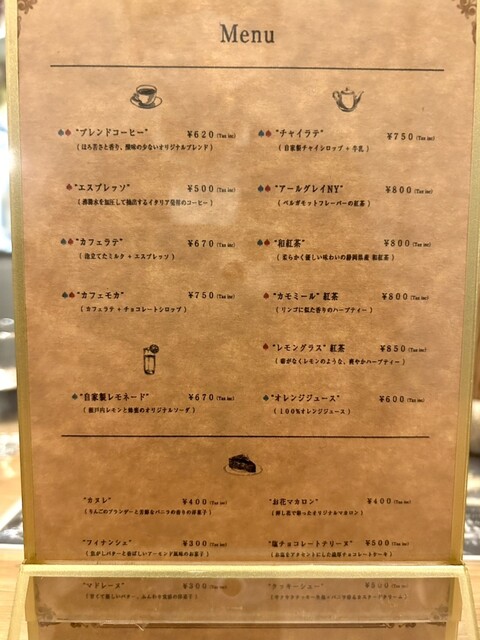 Menu
"ブレンドコーヒー" ¥620(Tax inc)
(ほろ苦さと香り、酸味の少ないオリジナルブレンド)
"エスプレッソ" ¥500(Tax inc)
(沸騰水を加圧して抽出するイタリア発祥のコーヒー)
"カフェラテ" ¥670(Tax inc)
(泡立てたミルク + エスプレッソ)
"カフェモカ" ¥750(Tax inc)
(カフェラテ + チョコレートシロップ)
"自家製レモネード" ¥670(Tax inc)
(瀬戸内レモンと蜂蜜のオリジナルソーダ)
"チャイラテ" ¥750(Tax inc)
(自家製チャイシロップ + 牛乳)
"アールグレイNY" ¥800(Tax inc)
(ベルガモットフレーバーの紅茶)
"和紅茶" ¥800(Tax inc)
(柔らかく優しい味わいの静岡県産 和紅茶)
"カモミール" 紅茶 ¥800(Tax inc)
(リンゴに似た香りのハーブティー)
"レモングラス" 紅茶 ¥850(Tax inc)
(癖がなくレモンのような、爽やかハーブティー)
"オレンジジュース" ¥600(Tax inc)
(100%オレンジジュース)
"カヌレ" ¥400(Tax inc)
(りんごのブランデーと芳醇なバニラの香りの洋菓子)
"フィナンシェ" ¥300(Tax inc)
(焦がしバターと香ばしいアーモンド風味のお菓子)
"マドレーヌ" ¥300(Tax inc)
"お花マカロン" ¥400(Tax inc)
(押し花で飾ったオリジナルマカロン)
"塩チョコレートテリーヌ" ¥500(Tax inc)
(お塩をアクセントにした濃厚チョコレートケーキ)
"クッキーシュー" ¥500(Tax inc)